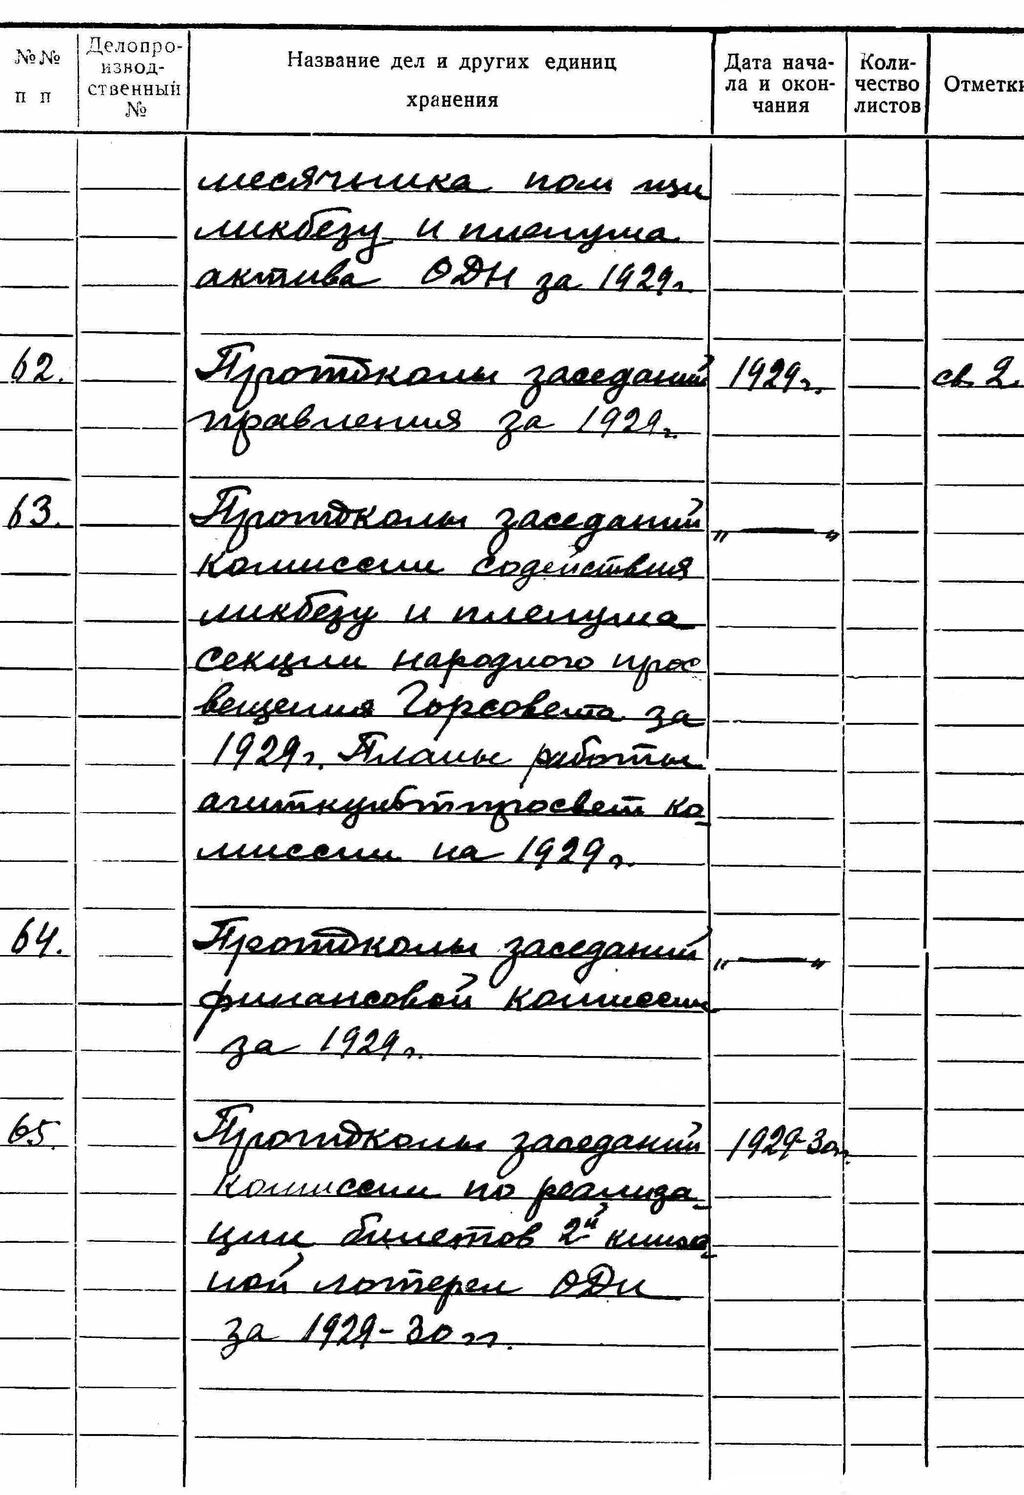 №№ п п
Делопроизвод-ственный №
Название дел и других единиц хранения
Дата нача-ла и окон-чания
Коли-чество листов
Отметки
месячника пом щи
ликбезу и пленума
актива ОДН за 1929г.
62. Протоколы заседаний 1929г. св. 2.
правления за 1929г.
63. Протоколы заседаний „ — „
комиссии содействия
ликбезу и пленума
секции народного прос
вещения Горсовета за
1929г. Планы работы
агиткультпросвет ко-
миссии на 1929г.
64. Протоколы заседаний „ — „
финансовой комиссии
за 1929г.
65. Протоколы заседаний 1929-30гг.
комиссии по реализа-
ции билетов 2й
ной лотереи ОДН
за 1929-30гг.